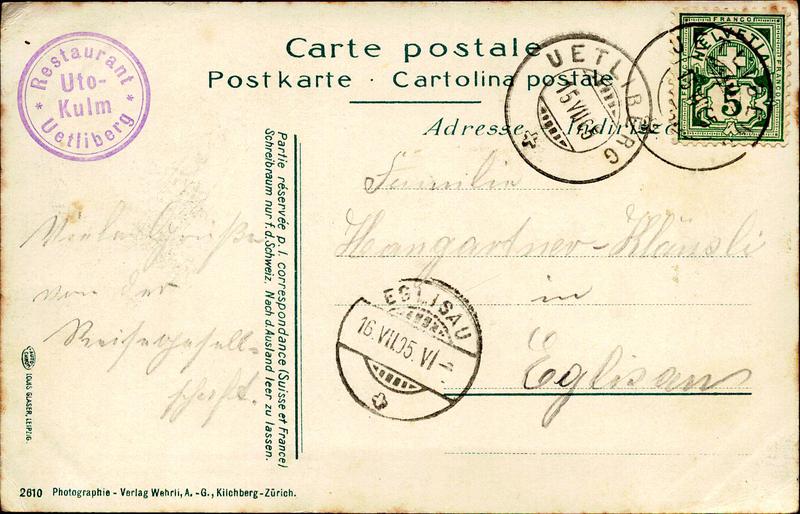 Carte postale
Postkarte · Cartolina postale
Adresse Indirizzo
Restaurant
Uto-
Kulm
Uetliberg
UETLIBERG
15 VII 05
FRANCO
HELVETIA
5
Familie
Hangartner-Kläusli
in
Eglisau
EGLISAU
16.VII.05.VI
Viele Grüße
von der
Reisegesell-
schaft.
Partie réservée p. l. correspondance (Suisse et France)
Schreibraum nur f. d. Schweiz. Nach d. Ausland leer zu lassen.
LOUIS GLASER, LEIPZIG.
2610 Photographie - Verlag Wehrli, A. - G., Kilchberg-Zürich.